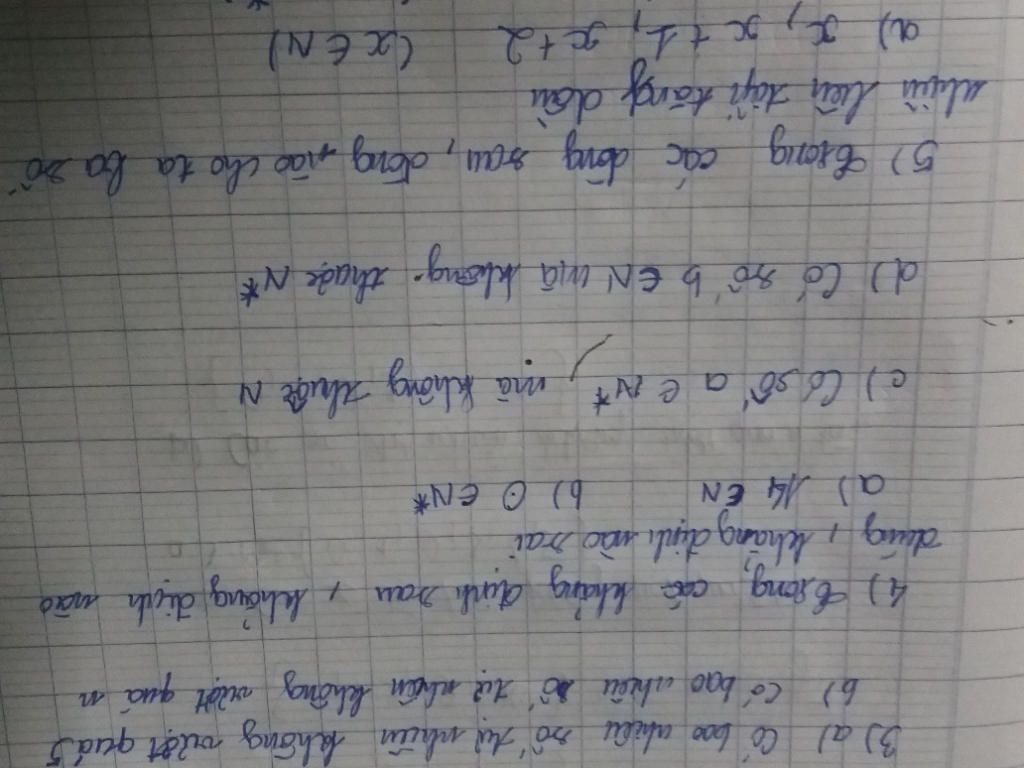 3) a) Có bao nhiêu số tự nhiên không vượt quá 5
b) Có bao nhiêu số tự nhiên không vượt quá n
4) Trong các khẳng định sau, khẳng định nào
đúng, khẳng định nào sai
a) 14 ∈ N b) 0 ∈ N*
c) Có số a ∈ N*, mà không thuộc N
d) Có số b ∈ N mà không thuộc N*
5) Trong các dòng sau, dòng nào cho ta ba số
nhiên liên tiếp tăng dần
a) x, x + 1, x + 2 (x ∈ N)